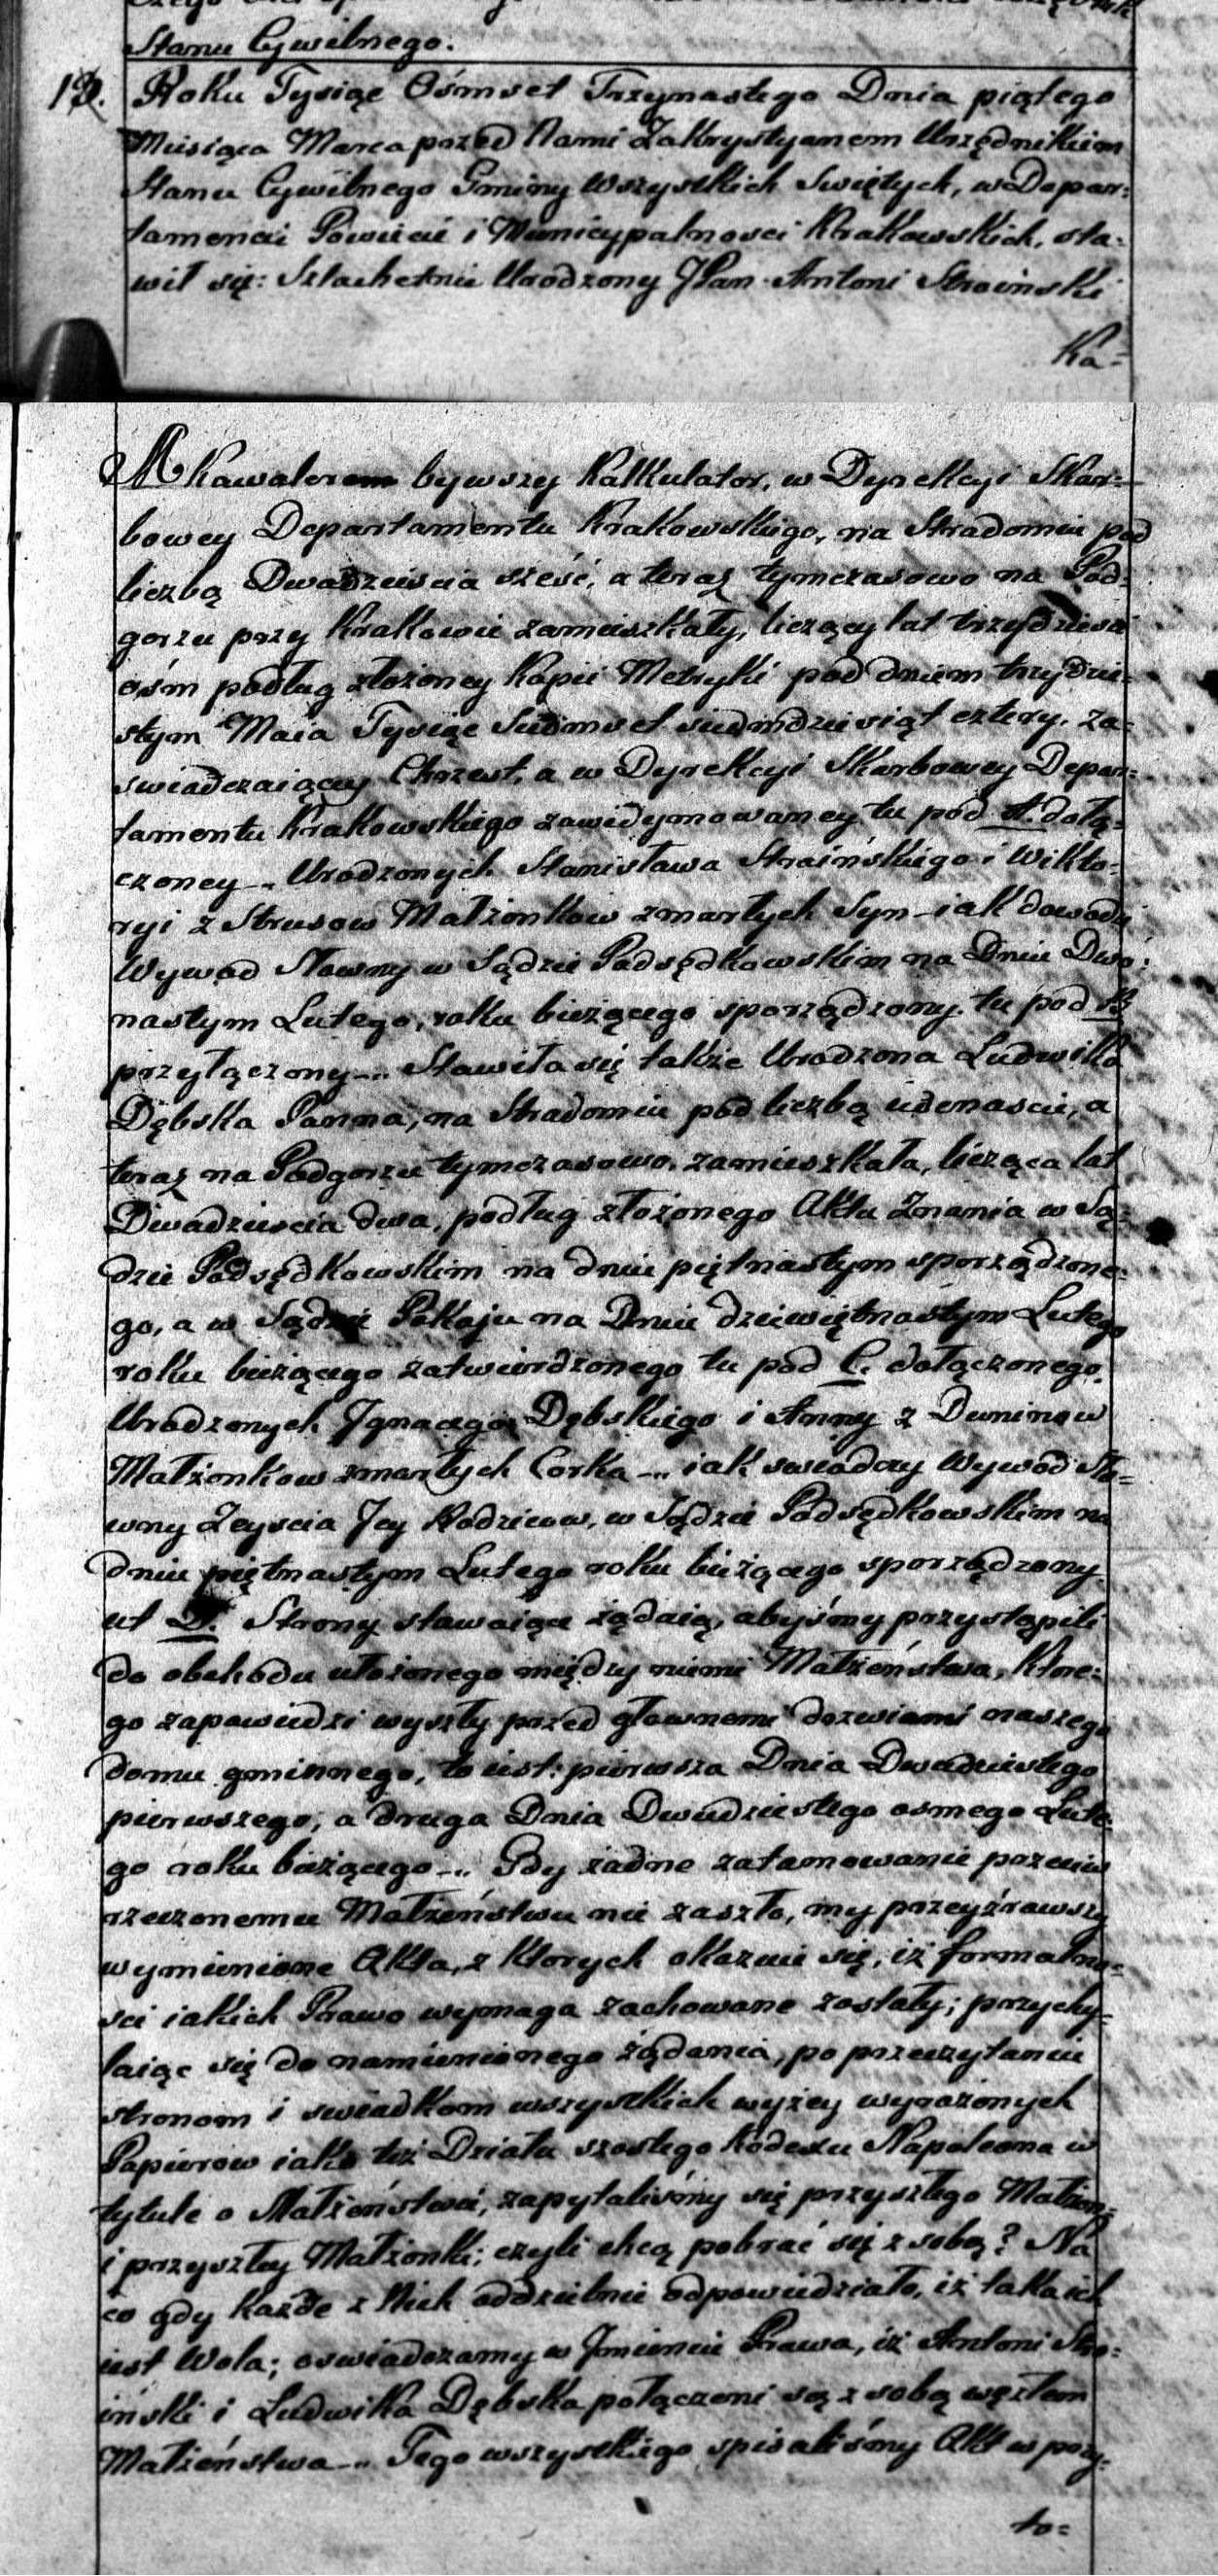 Stanu Cywilnego.
Roku Tysiąc Ośmset Trzynastego Dnia piątego
Miesiąca Marca przed Nami Zakrystyanem Urzędnikiem
Stanu Cywilnego Gminy Wszystkich Swiętych, w Depar:
tamencie Powiecie i Municypalnosci Krakowskich, sta:
wił się: Szlachetnie Urodzony JPan Antoni Stroinski
Ka=
Kawalerem bywszy Kalkulator, w Dyrekcyi Skar:
bowey Departamentu Krakowskiego, na Stradomiu pod
liczbą Dwadzieścia sześć, a teraz tymczasowo na Pod:
gorzu przy Krakowie zamieszkały, liczący lat trzydzieści
ośm podług złożoney Kopii Metryki pod dniem trzydzie:
stym Maia Tysiąc Siedmset siedmdziesiąt cztery, za:
swiadczaiącey Chrzest, a w Dyrekcyi Skarbowey Depar:
tamentu Krakowskiego zawidymowaney tu pod A. dołą:
czoney... Urodzonych Stanisława Straińskiego i Wikto:
ryi z Strusow Małżonkow zmarłych Syn - iak dowodzi
Wywod Słowny w Sądzie Podsędkowskim na Dniu Dwó:
nastym Lutego, roku bieżącego sporządzony, tu pod B
przyłączony... Stawiła się także Urodzona Ludwika
Dębska Panna, na Stradomiu pod liczbą iedenascie, a
teraz na Podgorzu tymczasowo, zamieszkała, licząca lat
Dwadzieścia dwa, podług złożonego Aktu Znania w Są:
dzie Podsędkowskim na dniu piętnastym sporządzone:
go, a w Sądzie Pokoju na Dniu dziewiętnastym Lutego
roku bieżącego zatwierdzonego tu pod C. dołączonego,
Urodzonych Jgnacego Dębskiego i Anny z Duninow
Małżonkow zmarłych Corka ... iak swiadczy Wywod Sło:
wny Zeyscia Jey Rodzicow, w Sądzie Podsędkowskim na
dniu piętnastym Lutego roku bieżącego sporządzony
ut D. Strony stawaiące żądaią, abyśmy przystąpili
do obchodu ułożonego między niemi Małżeństwa, Któ re:
go zapowiedzi wyszły przed głownemi dzwiami naszego
domu gminnego, to iest: pierwsza Dnia Dwudziestego
pierwszego, a druga Dnia Dwudziestego osmego Lute:
go roku bieżącego ... Gdy żadne zatamowanie przeciw
rzeczonemu Małżeństwu nie zaszło, my przeyźrawszy
wymienione Akta, z ktorych okazuie się, iż formalno:
sci iakich Prawo wymaga zachowane zostały; przychy:
laiąc się do namienionego żądania, po przeczytaniu
stronom i swiadkom wszystkich wyżey wyrażonych
Papierow iako też Działu szostego Kodexu Napoleona w
tytule o Małżeństwie, zapytaliśmy się przyszłego Małżon:
i przyszłey Małżonki; czyli chcą pobrać się z sobą? Na
co gdy każde z Nich oddzielnie odpowiedziało, iż taka ich
iest Wola; oswiadczamy w Jmieniu Prawa, iż Antoni Stro:
iński i Ludwika Dębska połączeni są z sobą węzłem
Małżeństwa ... Tego wszystkiego spisaliśmy Akt w przy:
to=